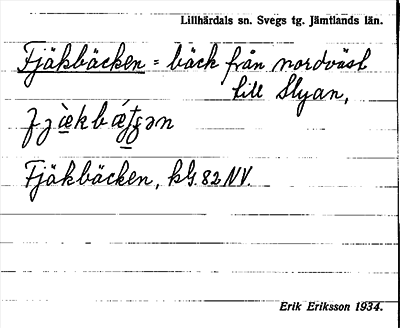 Lillhärdals sn. Svegs tg. Jämtlands län.
Fjäkbäcken = bäck från nordväst
till Slyan,
Fjäkbäcken, kG. 82 NV.
Erik Eriksson 1934.